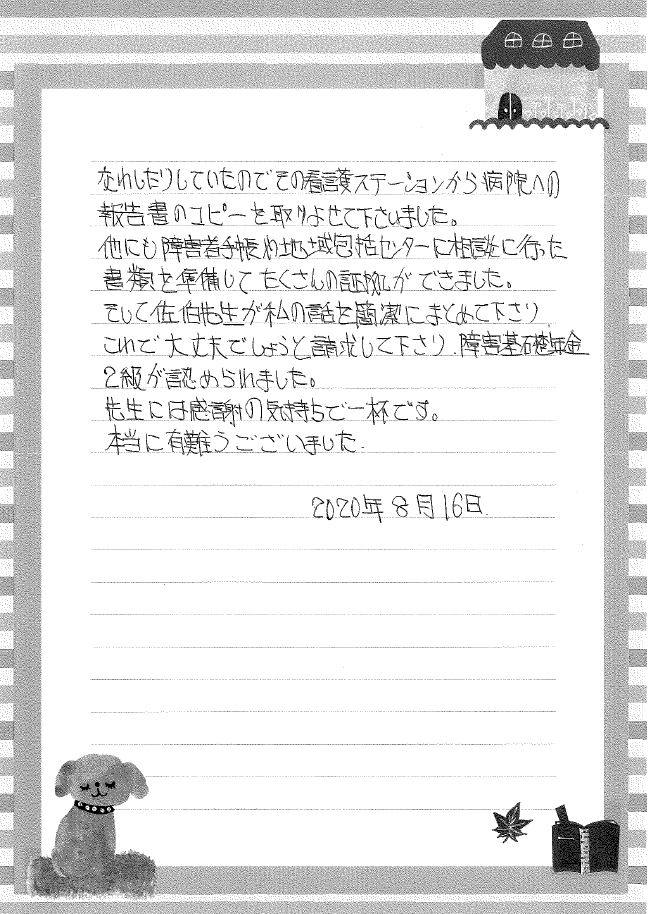 なれしたりしていたのでその看護ステーションから病院への
報告書のコピーを取りよせて下さいました。
他にも障害者手帳や地域包括センターに相談に行った
書類を準備してたくさんの証拠ができました。
そして佐伯先生が私の話を簡潔にまとめて下さり
これで大丈夫でしょうと請求して下さり、障害基礎年金
2級が認められました。
先生には感謝の気持ちで一杯です。
本当に有難うございました.
2020年8月16日